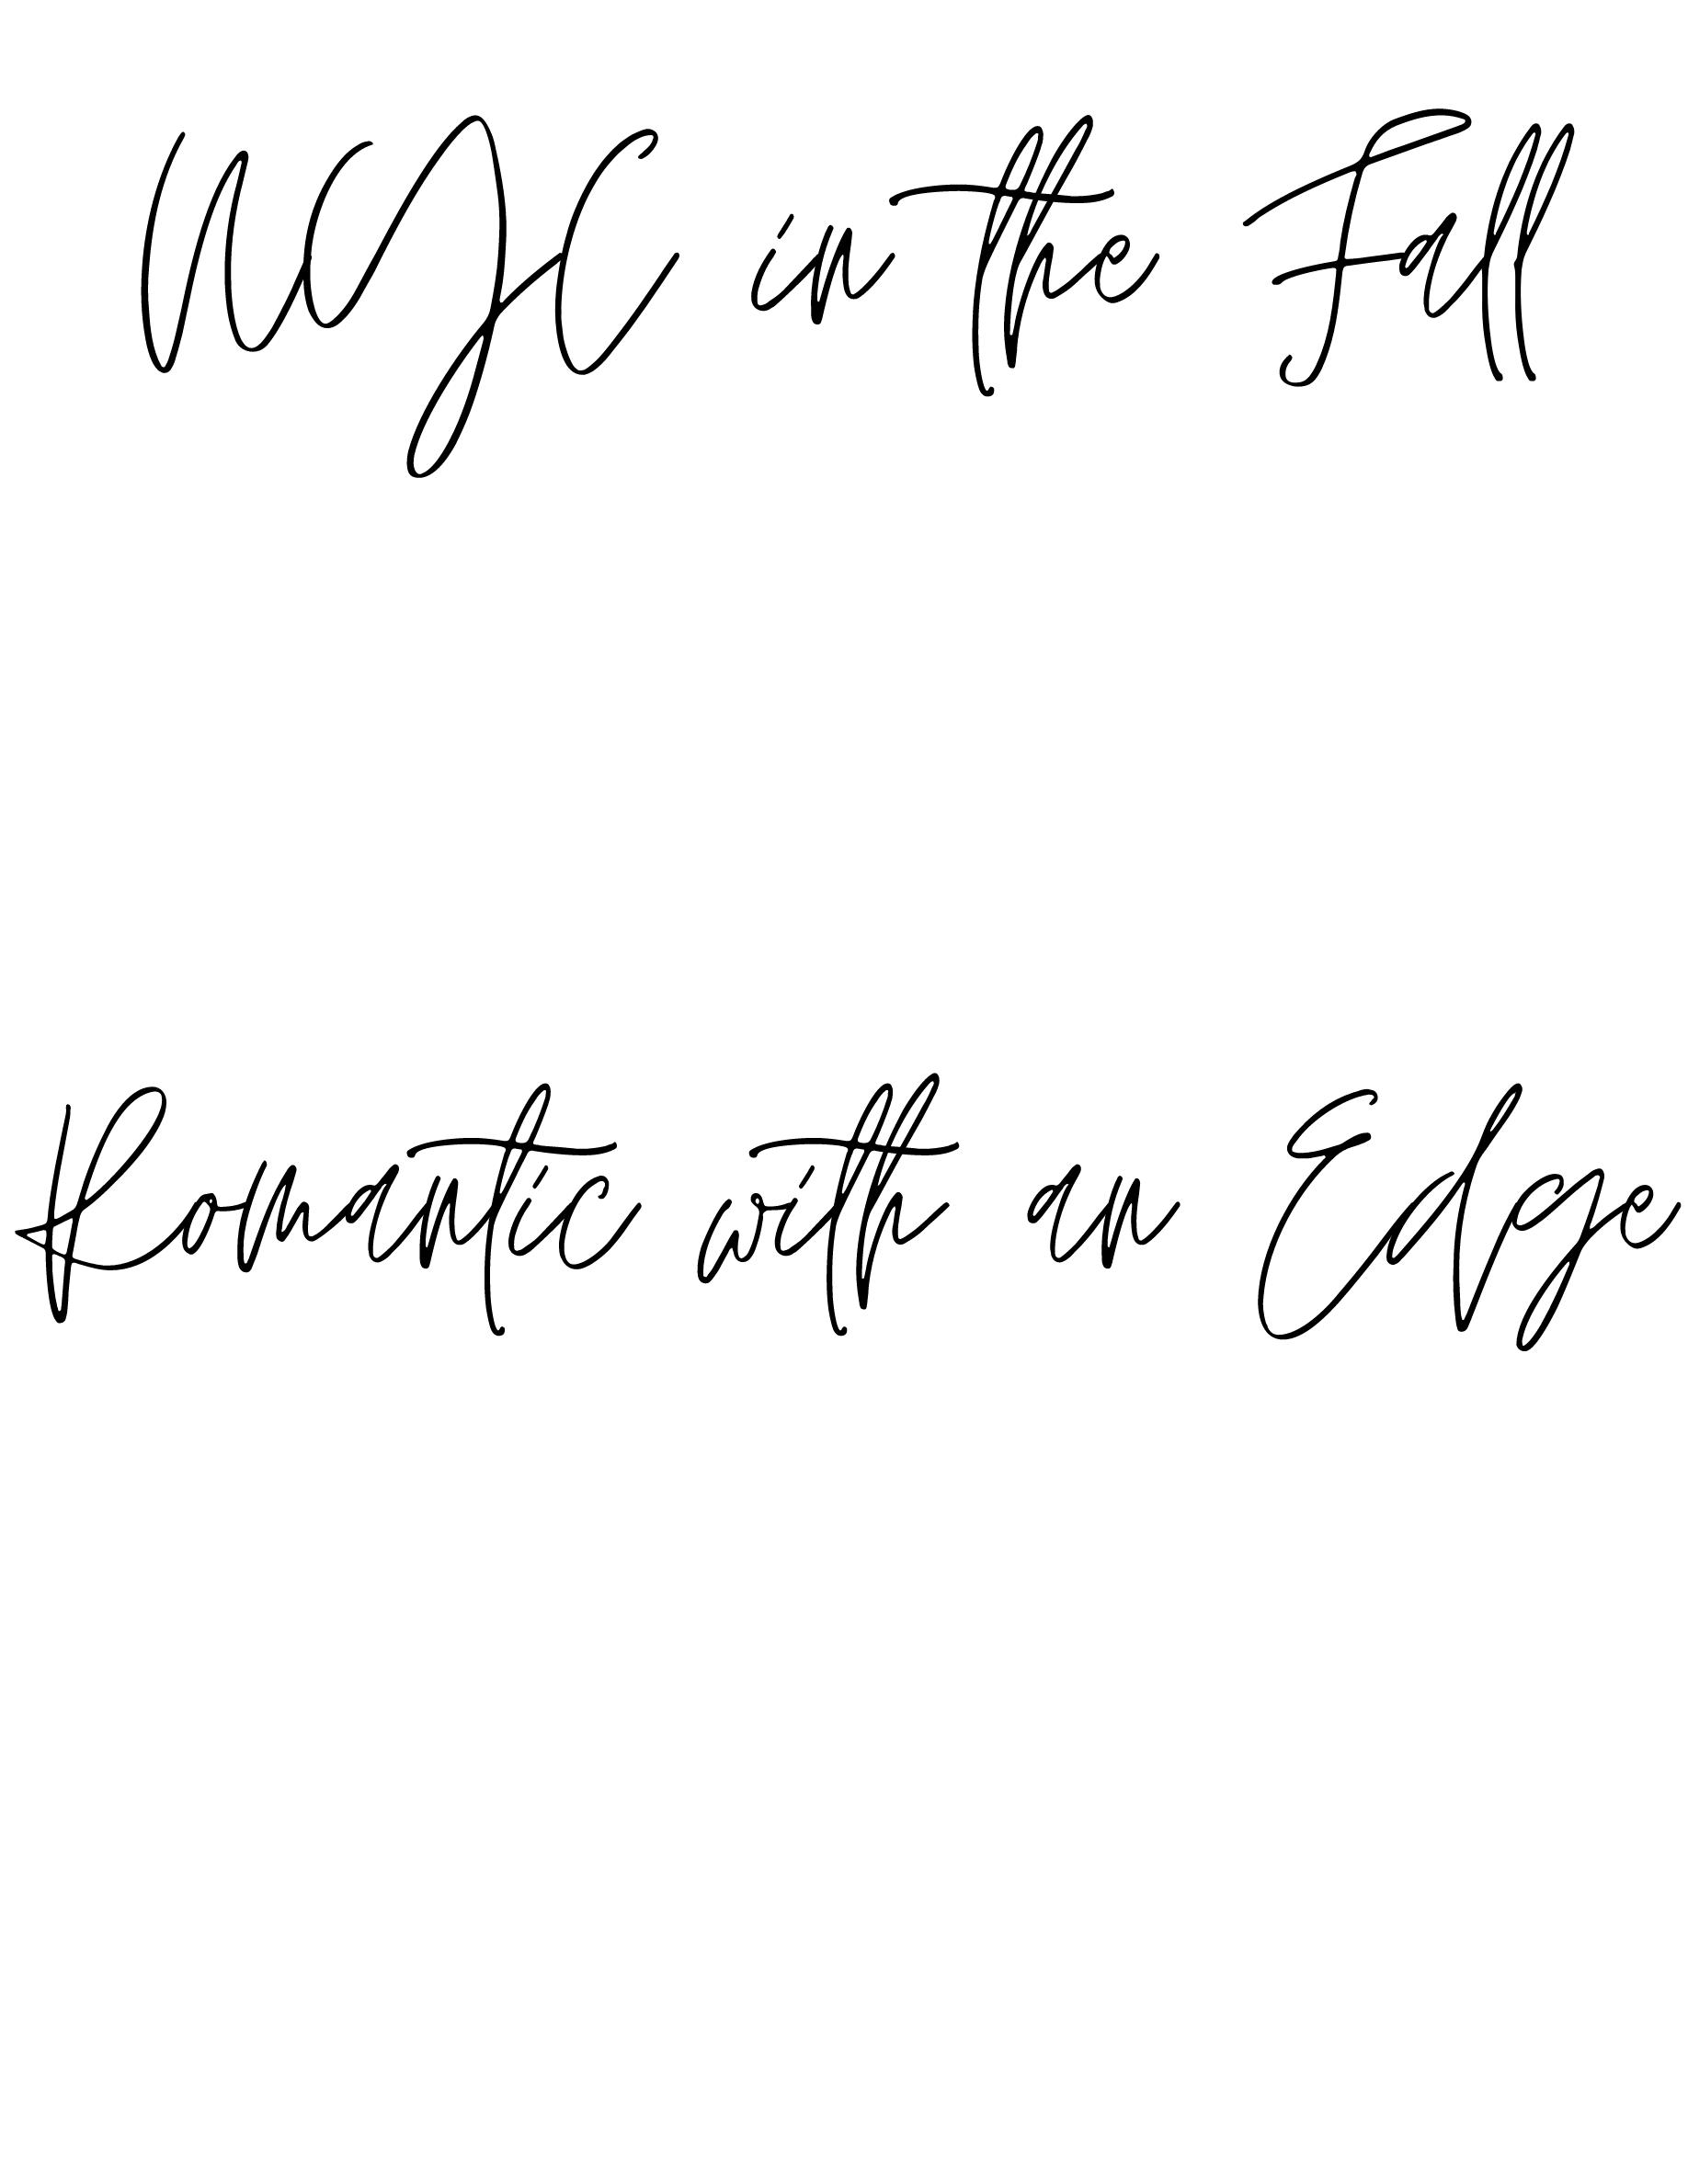 NYC in the Fall
Romantic with an Edge